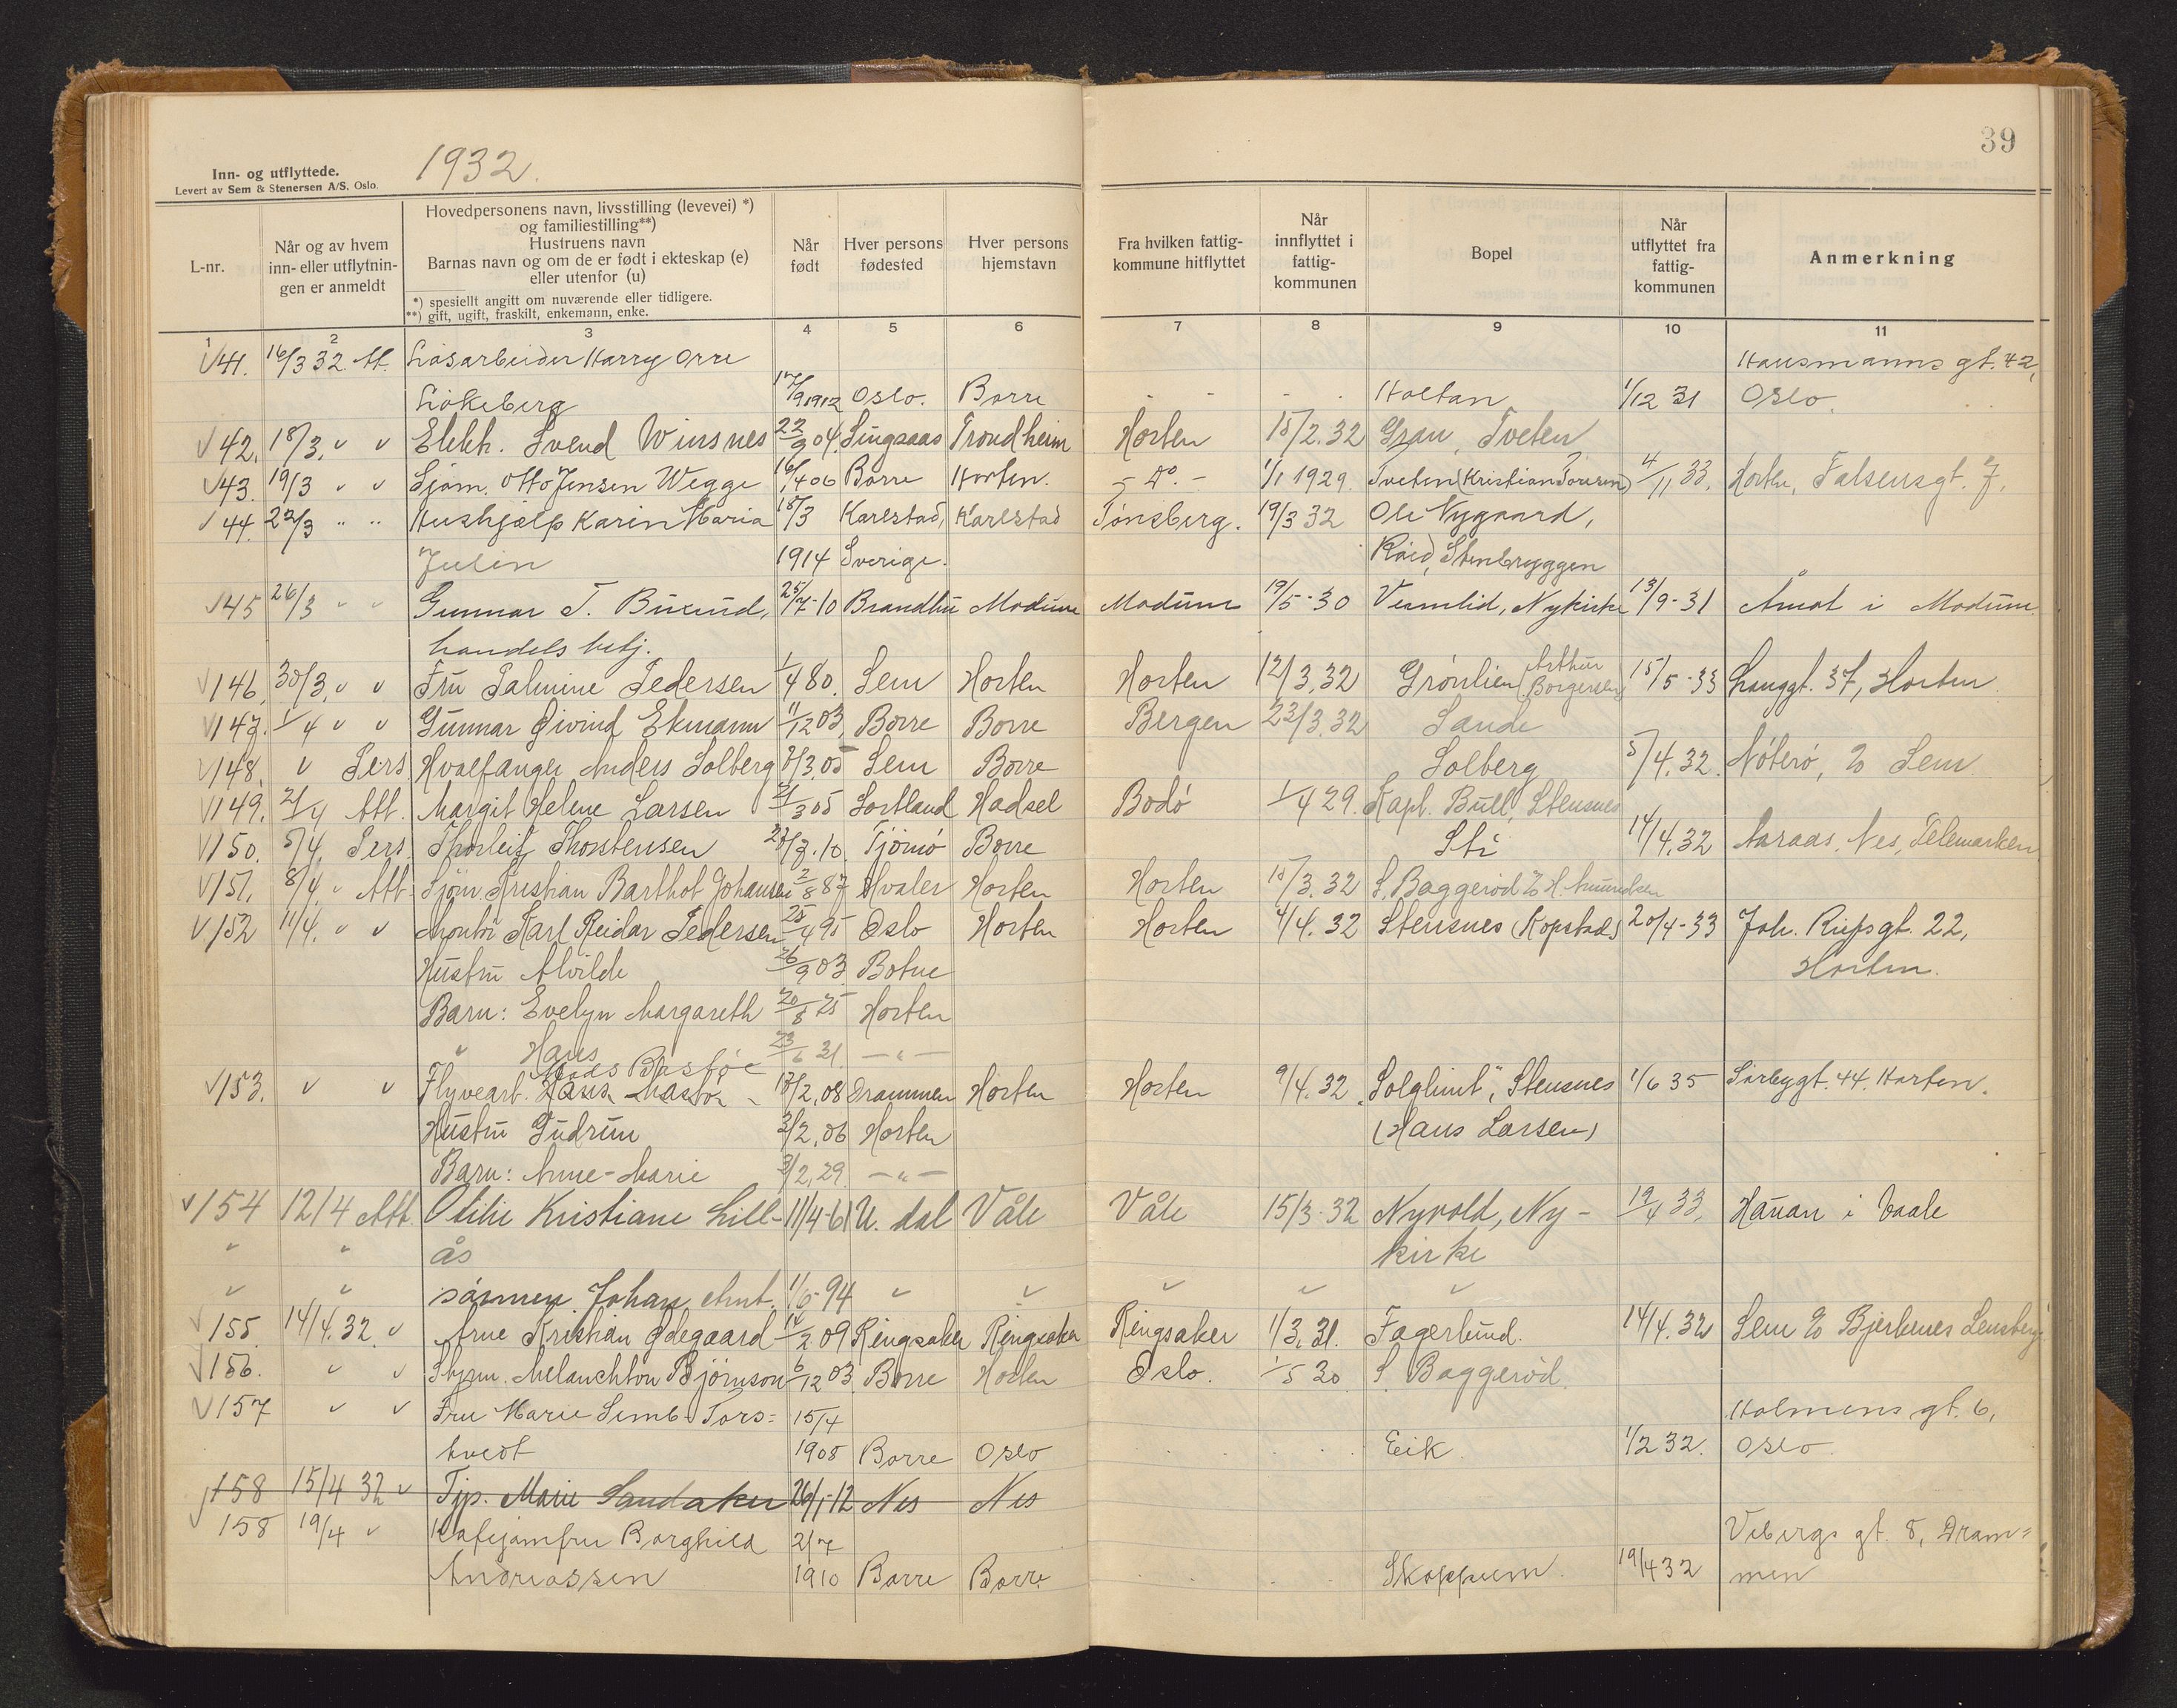 39
Inn- og utflyttede.
1932.
Levert av Sem & Stenersen A/S. Oslo.
L-nr.
Når og av hvem
inn- eller utflytnin-
gen er anmeldt
Hovedpersonens navn, livsstilling (levevei) *)
og familiestilling**)
Hustruens navn
Barnas navn og om de er født i ekteskap (e)
eller utenfor (u)
*) spesiellt angitt om nuværende eller tidligere.
**) gift, ugift, fraskilt, enkemann, enke.
Når
født
Hver persons
fødested
Hver persons
hjemstavn
Fra hvilken fattig-
kommune hitflyttet
Når
innflyttet i
fattig-
kommunen
Bopel
Når
utflyttet fra
fattig-
kommunen
Anmerkning
1 2 3 4 5 6 7 8 9 10 11
41. 16/3 32. Att. Løsarbeider Harry Orre Hausmanns gt. 42,
Løkeberg 17/9 1912 Oslo. Borre Holtan 1/12 31 Oslo.
42. 18/3. " " Elekk. Svend Winsnes 22/9 04. Singsaas Trondheim Horten 15/2. 32 Gran, Tveten
43. 19/3 " " Sjøm. Otto Jensen Wegge 16/4 06 Borre Horten. - Do. - 1/1 1929. Tveten (Kristian Toresen) 4/11 33. Horten, Falsensgt. 7.
44. 22/3 " " Hushjælp Karin Maria 18/3 Karlstad, Karlstad Tønsberg. 19/3 32 Ole Nygaard,
Julin 1914 Sverige. Røed, Stenbryggen
45 26/3 " " Gunnar T. 25/7-10 Brandbu Modum Modum 19/5-30 Nykirke 13/9-31 Åmot i Modum.
handelsbetj.
146. 30/3. " " Fru Palmine Pedersen 1/4 80. Sem Horten Horten 12/3. 32 Grønlien (Arthur Borgersen) 15/5-33 Langgt. 37, Horten
147. 1/4 " " Gunnar Øivind Ekmann 11/12 03. Borre Borre Bergen 23/3. 32 Sande
148. " Pers Hvalfanger Anders Solberg 2/3. 05 Sem Borre Solberg 5/4. 32. Nøterø, % Sem
149. 2/4 Att. Margit Helene Larsen 21/3 05 Sortland Hadsel Bodø 1/4 29. Kapt. Bull, Stensnes
150. 5/4. Pers. Thorleif Thorstensen 23/3. 10. Tjømø Borre Sti 14/4. 32 Aaraas, Nes, Telemarken
151. 8/4. " Att. Sjøm Kristian Barthol Johansen 2/8 87 Hvaler Horten Horten 15/3. 32 S. Baggerød % H. Amundsen
152 11/4. " " Montør Karl Reidar Pedersen 25/4 95 Oslo Horten Horten 4/4. 32 Stensnes (Kopstad) 20/4-33 Joh. Riipsgt. 22,
Hustru Alvilde 26/9 03. Botne Horten.
Barn: Evelyn Margareth 20/8 25 Horten
" Hans 23/6 31. - " -
Mads Bastøe
153. " " Flyvearb. Hans Mastø 13/2. 08 Drammen Horten Horten 9/4. 32 "Solglimt", Stensnes 1/6 35 Sørbygt. 44. Horten.
Hustru Gudrun 3/2. 06 Horten (Hans Larsen)
Barn: Anne-Marie 3/2. 29. - " -
154 12/4 Att. Otilie Kristiane Lill- 11/4-61 U. dal Våle Våle 15/3-32 Nyvold, Ny- 19/4 33. Hanan i Vaale
" " ås kirke
" " sønnen Johan Ant. 1/6-94 " " " " "
155. 14/4. 32. " Arne Kristian Ødegaard 14/2 09 Ringsaker Ringsaker Ringsaker 1/3. 31. Fagerlund. 14/4. 32 Sem % Bjerknes
156. " " Styrm. Melanchton Bjørnson 6/12 03. Borre Horten Oslo. 1/5 30 S. Baggerød.
157 " " Fru Marie Semb-Tors= 15/4 Holmens gt. 6,
tvedt 1908 Borre Oslo Eik. 1/2 32. Oslo.
158 15/4 32 " Tjp. Marie Sandaker 26/1-12 Nes Nes
158 19/4 " Kafejomfru Borghild 2/7 Vibergs gt. 8, Dram=
Andreassen 1910 Borre Borre Skoppum. 19/4 32 men